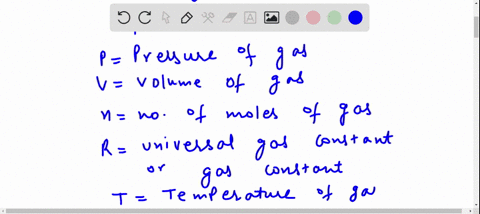 P = Pressure of gas
V = volume of gas
n = no. of moles of gas
R = universal gas constant
or gas constant
T = Temperature of ga